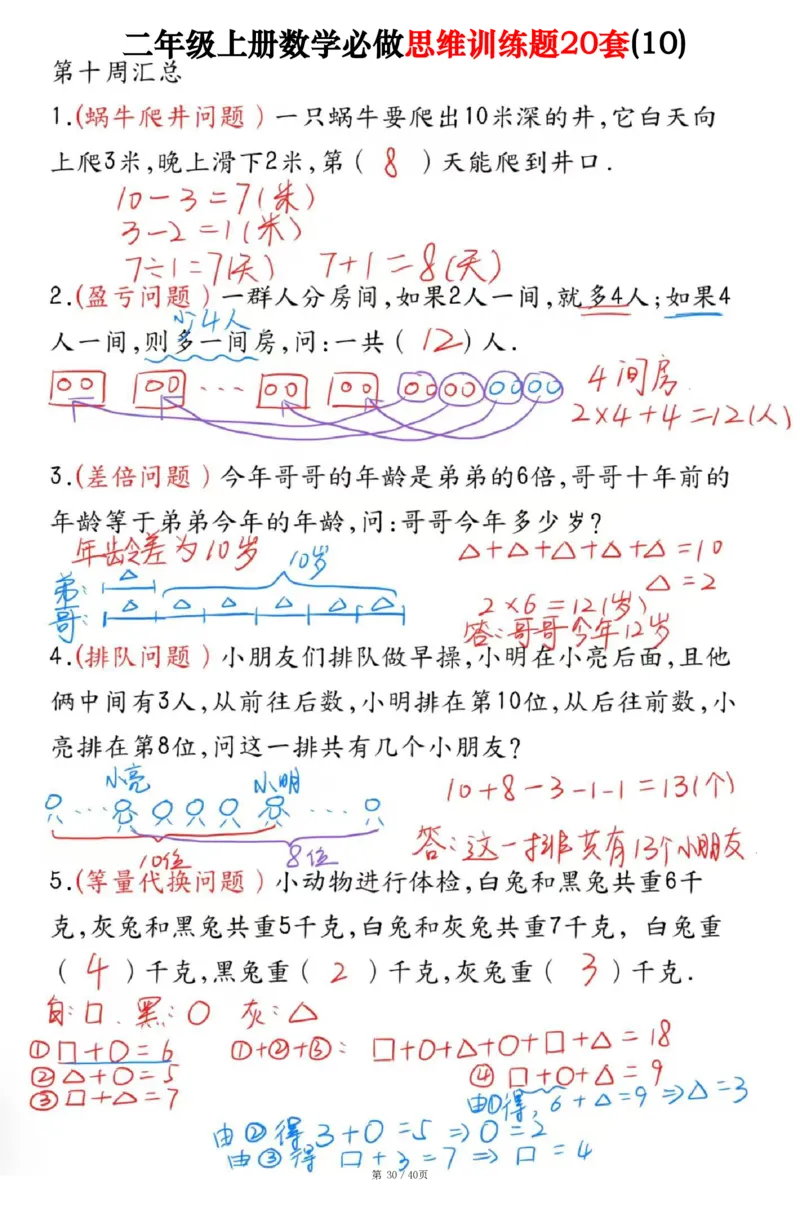 二年级上册数学必做思维训练题20套(10)
第十周汇总
1.(蜗牛爬井问题)一只蜗牛要爬出10米深的井,它白天向
上爬3米,晚上滑下2米,第( 8 )天能爬到井口.
10-3=7(米)
3-2=1(米)
7÷1=7(天) 7+1=8(天)
2.(盈亏问题)一群人分房间,如果2人一间,就多4人;如果4
少4人
人一间,则多一间房,问:一共( 12 )人.
4间房
2×4+4=12(人)
3.(差倍问题)今年哥哥的年龄是弟弟的6倍,哥哥十年前的
年龄等于弟弟今年的年龄,问:哥哥今年多少岁?
年龄差为10岁 10岁 △+△+△+△+△=10
弟: △ △=2
哥: △ △ △ △ △ △ 2×6=12(岁)
答:哥哥今年12岁
4.(排队问题)小朋友们排队做早操,小明在小亮后面,且他
俩中间有3人,从前往后数,小明排在第10位,从后往前数,小
亮排在第8位,问这一排共有几个小朋友?
小亮 小明 10+8-3-1-1=13(个)
答:这一排共有13个小朋友.
10位 8位
5.(等量代换问题)小动物进行体检,白兔和黑兔共重6千
克,灰兔和黑兔共重5千克,白兔和灰兔共重7千克, 白兔重
( 4 )千克,黑兔重( 2 )千克,灰兔重( 3 )千克.
白:□. 黑:○ 灰:△
①□+○=6 ①+②+③: □+○+△+○+□+△=18
②△+○=5 ④ □+○+△=9
③□+△=7 由①得, 6+△=9⇒△=3
由②得 3+○=5⇒○=2
由③得 □+3=7⇒□=4
第 30 / 40页